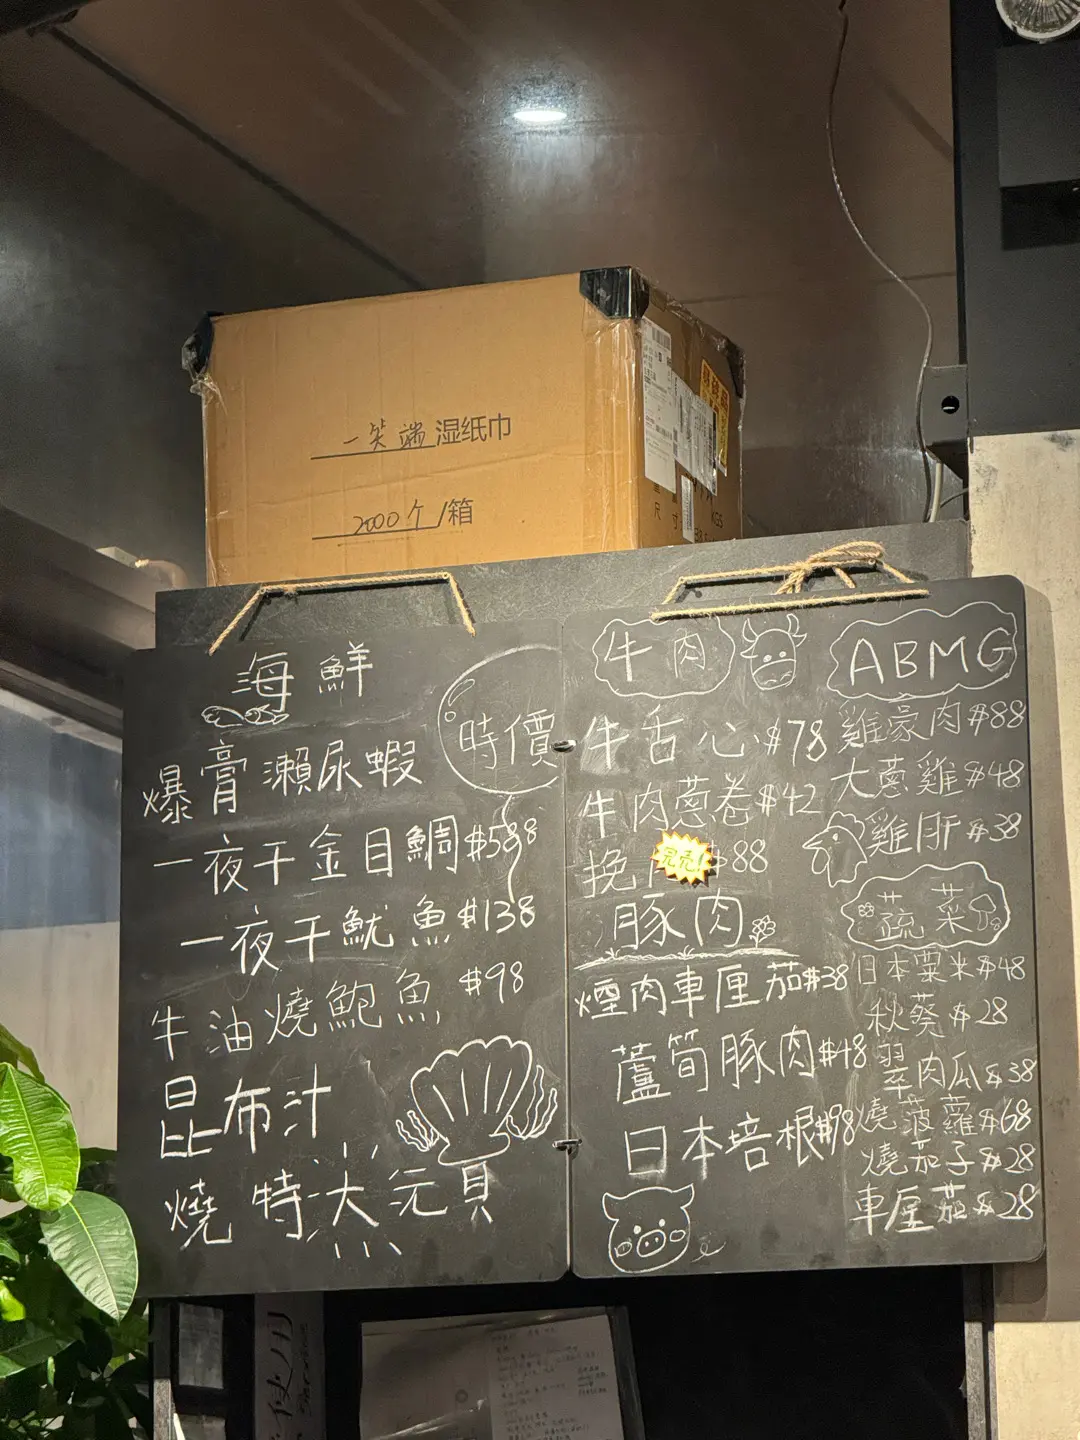 一笑端湿纸巾
2000个/箱
尺寸
KGS
海鮮
時價
爆膏瀨尿蝦
一夜干金目鯛$588
一夜干魷魚$138
牛油燒鮑魚$98
昆布汁
燒特大元貝
牛肉
牛舌心$78
牛肉蔥卷$42
挽
完売!
$88
豚肉
煙肉車厘茄$38
蘆筍豚肉$48
日本培根$98
ABMG
雞豪肉$88
大蔥雞$48
雞肝$38
蔬菜
日本粟米$48
秋葵$28
翠肉瓜$38
燒菠蘿$68
燒茄子$28
車厘茄$28